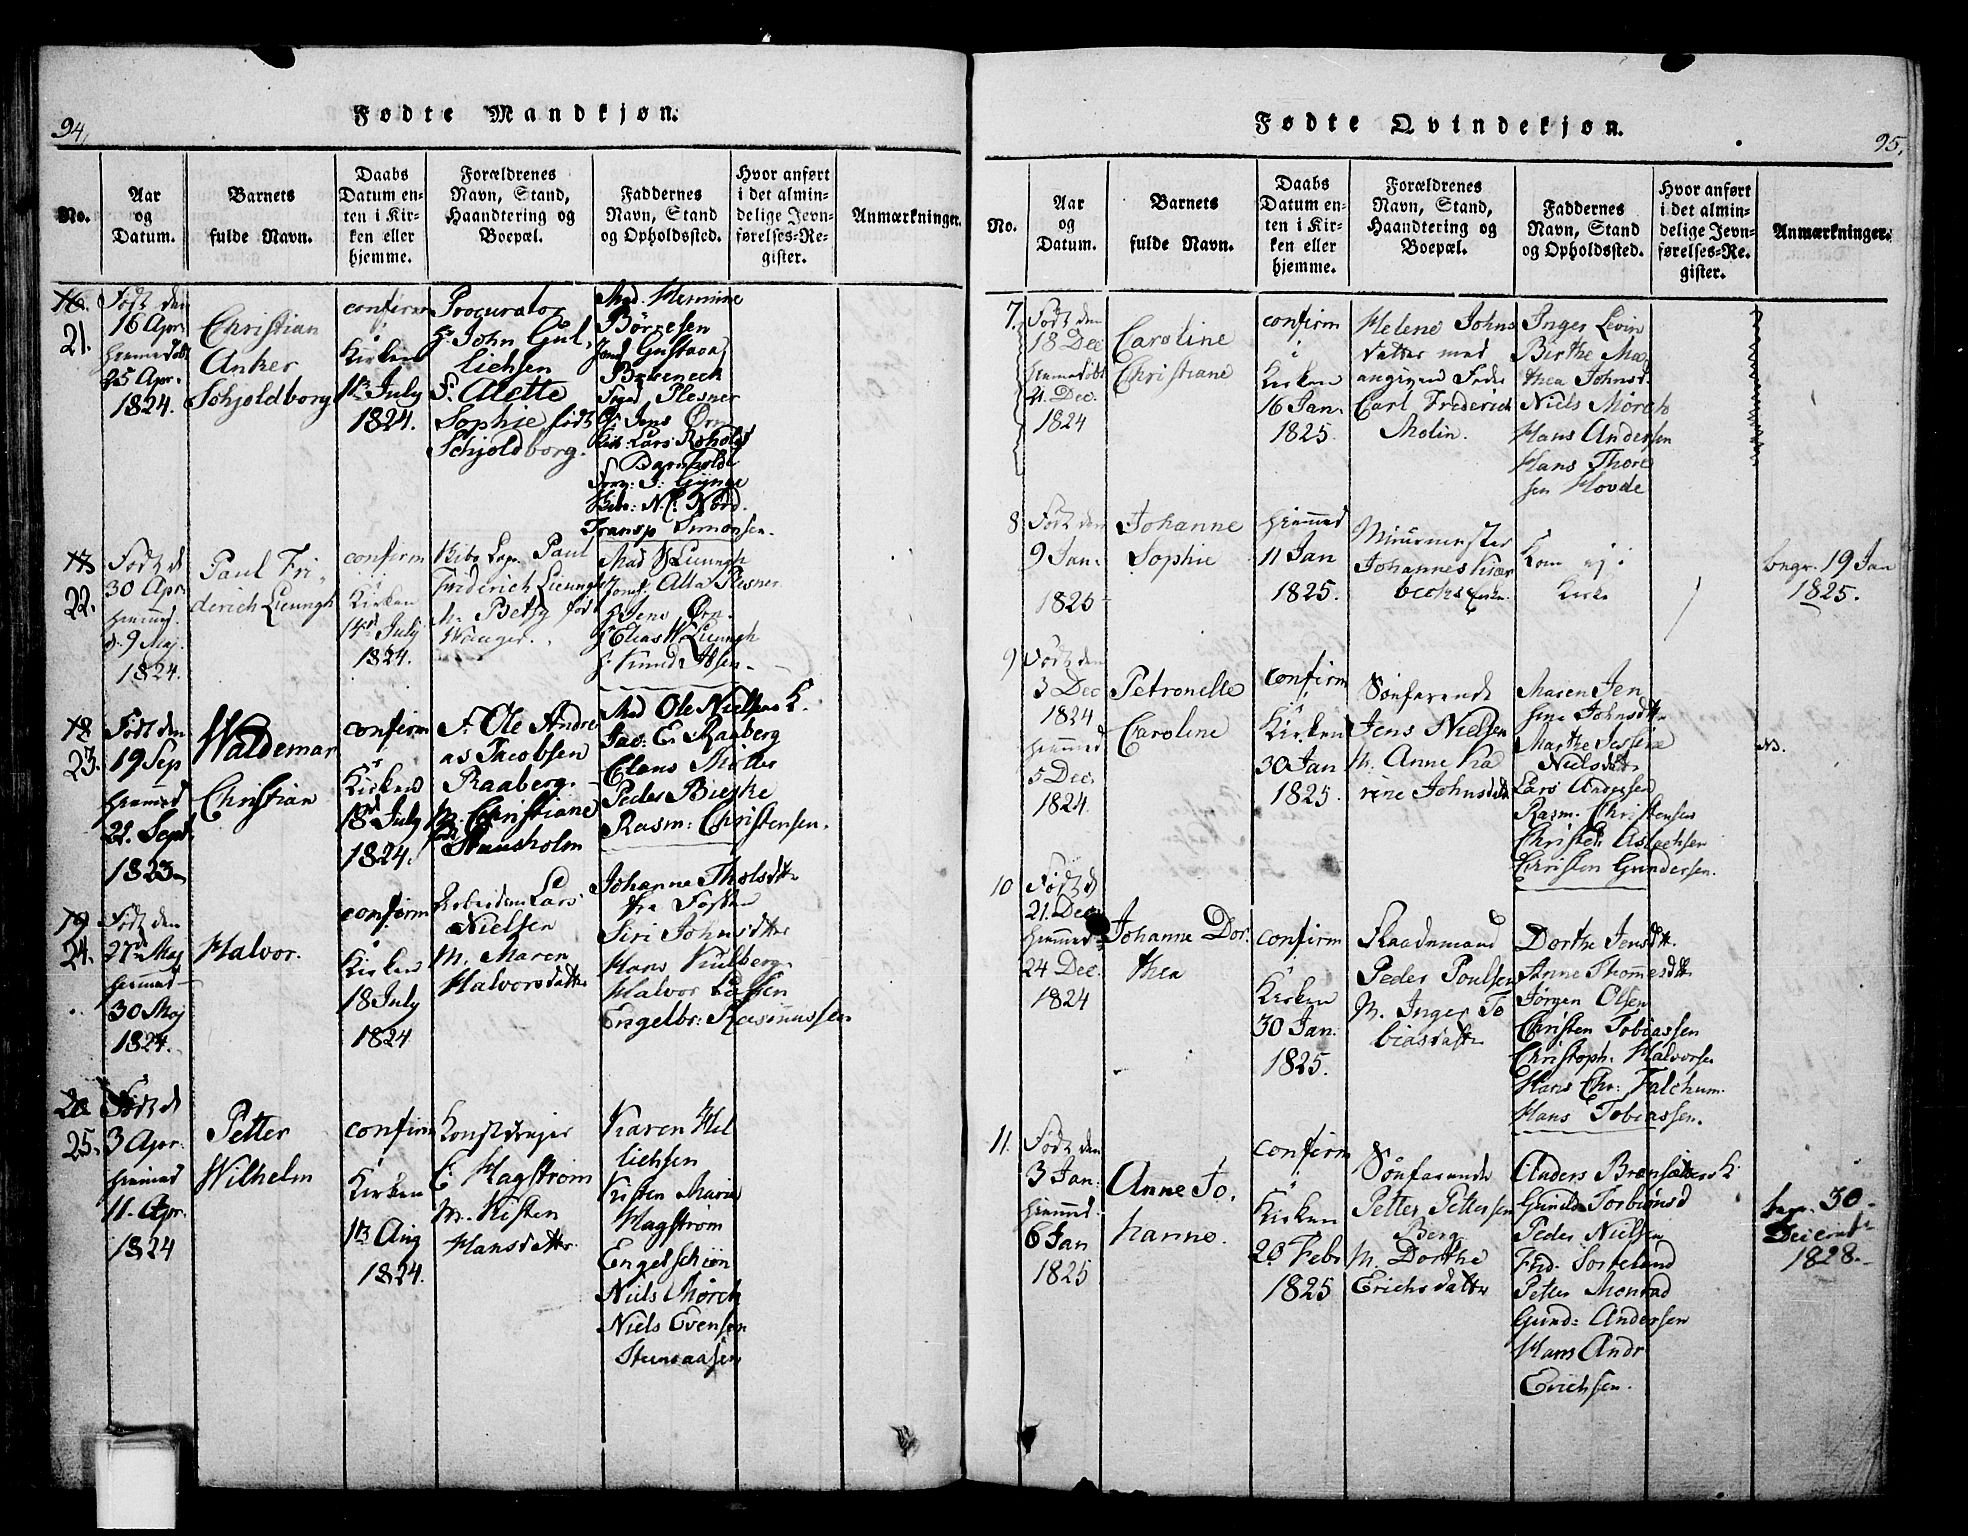 94.
Fødte Mandkjøn.
No.
Aar
og
Datum.
Barnets
fulde Navn.
Daabs
Datum en-
ten i Kir-
ken eller
hjemme.
Forældrenes
Navn, Stand,
Haandtering og
Boepæl.
Faddernes
Navn, Stand
og Opholdssted.
Hvor anført
i det almin-
delige Jevn-
førelses-Re-
gister.
Anmærkninger.
16.
21.
Födt den
16 Apr.
hiemedöbt
25 Apr.
1824.
Christian
Anker
Schjoldborg
confirm
i
Kirken
11 July
1824.
Procurator
John Gul,
lichsen
Alette
Sophie födt
Schjoldborg.
Mad. Hermine
Börresen
Gustava
Plesner
Jens Örn
Lars Roholdt
N. C. Nord.
Transp Simonsen.
22.
Födt d
30 Apr.
hiemmed.
d. 9 Maj.
1824.
Paul Fri,
derich Lieungh
confirm
i
Kirken
14 July
1824.
Paul
Friderich Lieungh
M. Betsy föd
Wanger.
Mad Lieungh
Plesner
Jens Örn
Elias W. Lieungh
Knud Ibsen
18
23.
Födt den
19 Sep
hiemmed
21. Sept.
1823
Waldemar
Christian
confirm
i
Kirken
18 July
1824.
F. Ole Andre
as Jacobsen
Raaberg.
M. Christiane
Stansholm
Mad Ole Nielsens K.
Jac: E. Raaberg
Claus Möller
Peder Bierke
Rasm: Christensen.
19
24.
Födt den
27 Maj
hiemmed
30 Maj
1824.
Halvor.
confirm
i
Kirken
18 July
1824
Lars
Nielsen
M. Maren
Halvorsdatter
Johanne Tholsdtr
Siri Johnsdtr
Hans Kulberg
Halvor Lassen
Engelbr: Rasmussen
20
25.
Födt d
3 Apr.
hiemmed
11. Apr.
1824
Petter
Wilhelm
confirm
i
Kirken
1 Aug
1824.
C. Hagström
M. Kisten
Hansdatter
Karen Hel
lichsen
Kisten Marie
Hagström
Engel Schiön
Niels Mörch
Niels Evensen
Stensaasen
95.
Fødte Qvindekjøn.
No.
Aar
og
Datum.
Barnets
fulde Navn.
Daabs
Datum en-
ten i Kir-
ken eller
hjemme.
Forældrenes
Navn, Stand,
Haandtering og
Boepæl.
Faddernes
Navn, Stand
og Opholdssted.
Hvor anført
i det almin-
delige Jevn-
førelses-Re-
gister.
Anmærkninger.
7.
Födt den
18 Dec
hiemmedöbt
21. Dec.
1824
Caroline
Christiane
confirm
i
Kirken
16 Jan.
1825.
Helene Johns
datter med
angiven Fader
Carl Frederich
Molin.
Inger Levin
Birthe Mar
thea Johnsd.
Niels Mörch
Hans Andersen
Hans Thore
sen Hovde
8
Födt den
9 Jan.
1825
Johanne
Sophie
hiemmed
11 Jan
1825.
Muurmester
Johannes Kiær
becks
Kom ej i
Kirke
begr. 19 Jan
1825.
9
Födt den
3 Dec
1824
hiemmed
5 Dec.
1824.
Petronelle
Caroline
confirm
i
Kirken
30 Jan
1825.
Söefarende
Jens Nielsen
M. Anne Ka
rine Johnsdatt
Maren Jen
sine Johnsdtr
Marthe
Nielsdatt
Lars Andersen
Rasm. Christensen
Christen Aslachsen
Christen Gundersen.
NB.
10
Födt d
21. Dec.
hiemmed
24 Dec.
1824
Johanne Dor.
thea
confirm
i
Kirken
30 Jan.
1825.
Flaademand
Peder Poulsen
M. Inger To
biasdatter
Dorthe Jensdtr.
Anne Thommesdtr
Jörgen Olsen
Christen Tobiassen
Christoph. Halvorsen
Hans Chr: Falchum.
Hans Tobiassen.
11.
Födt den
3 Jan.
hiemmed.
6 Jan
1825
Anne Jo,
hanne.
confirm
i
Kirken
20 Febr
1825
Söefarende
Petter Pettersen
Berg
M. Dorthe
Erichsdatter
Anders K
Gunild Torbiörnsd
Peder Nielsen
Frid. Sorteland
Petter Monrad
Gund: Andersen
Hans Andr
Erichsen.
begr. 30
Decembr
1828.